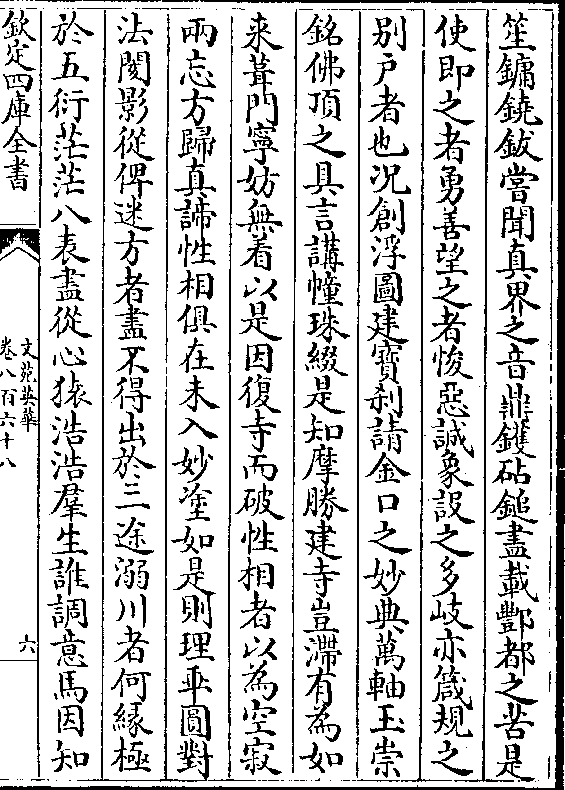 笙鏞鐃鈸嘗聞真界之音鼎鑊砧鎚盡載酆都之苦是
使即之者勇善望之者悛惡誠象設之多岐亦箴規之
别户者也况創浮圖建寶刹請金口之妙典萬軸玉崇
銘佛頂之具言講幢珠綴是知摩勝建寺豈滯有為如
来葺門寧妨無着以是因復寺而破性相者以為空寂
兩忘方歸真諦性相俱在未入妙塗如是則理垂圓對
法閡影從俾迷方者盡不得出於三途溺川者何縁極
於五衍茫茫八表盡從心猿浩浩羣生誰調意馬因知
欽定四庫全書
文苑英華
卷八百六十八
六